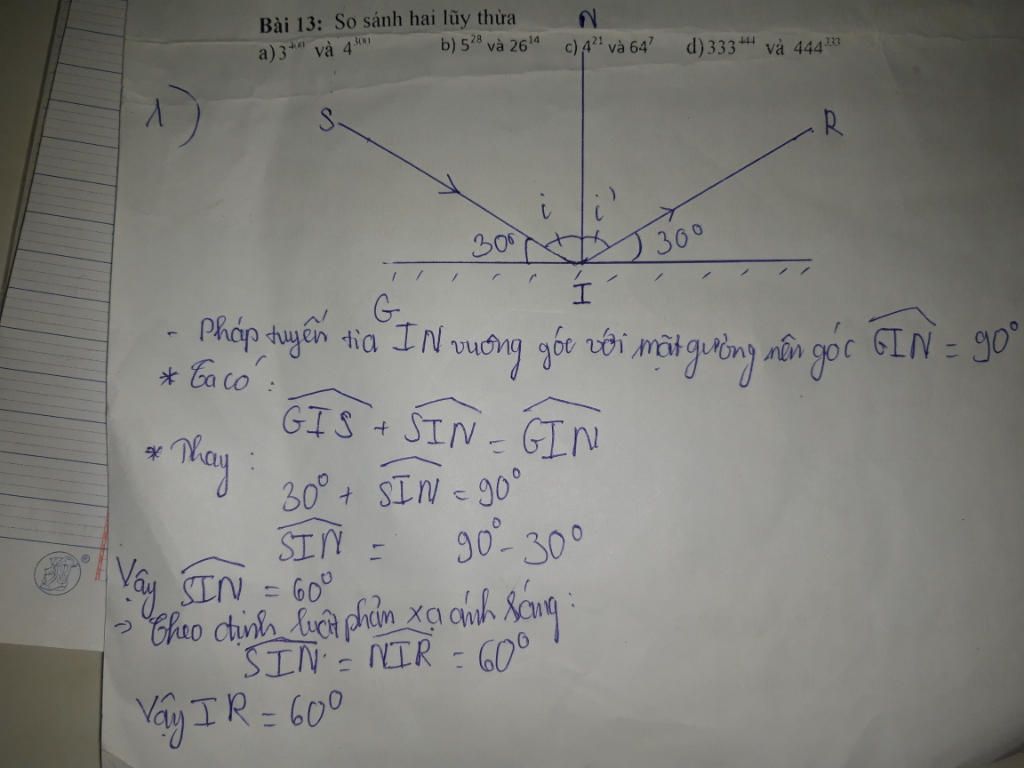 Bài 13: So sánh hai lũy thừa
a) 3 và 4 b) 5²⁸ và 26¹⁴ c) 4²¹ và 64⁷ d) 333⁴⁴⁴ và 444³³³
N
1)
S R
i i'
30° 30°
I
G
- Pháp tuyến tia IN vuông góc với mặt gương nên góc GIN = 90°
* Ta có :
GIS + SIN = GIN
* Thay :
30° + SIN = 90°
SIN = 90° - 30°
Vậy SIN = 60°
→ Theo định luật phản xạ ánh sáng :
SIN = NIR = 60°
Vậy IR = 60°